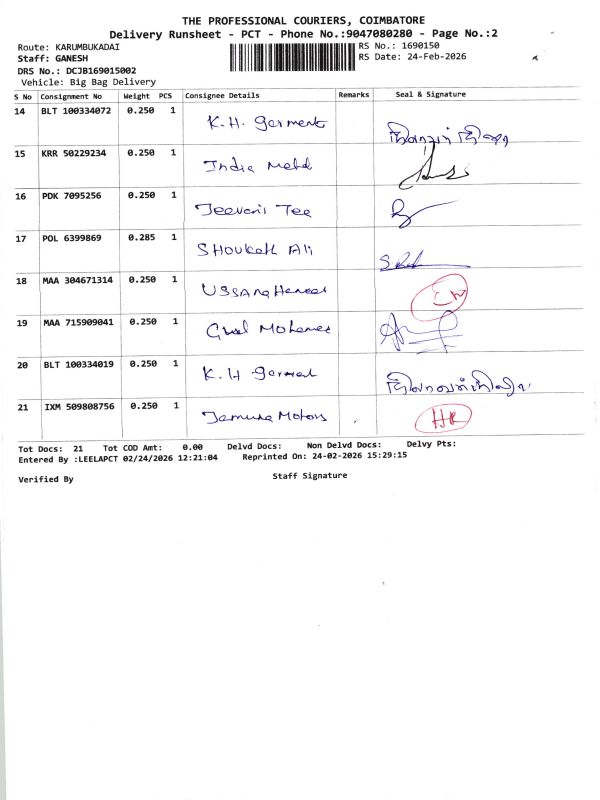 THE PROFESSIONAL COURIERS, COIMBATORE
Delivery Runsheet - PCT - Phone No.:9047080280 - Page No.:2
Route: KARUMBUKADAI
RS No.: 1690150
Staff: GANESH
RS Date: 24-Feb-2026
DRS No.: DCJB169015002
Vehicle: Big Bag Delivery
S No Consignment No Weight PCS Consignee Details Remarks Seal & Signature
14 BLT 100334072 0.250 1 K.H. garment
15 KRR 50229234 0.250 1 India Metal
16 PDK 7095256 0.250 1 Jeevan's Tea
17 POL 6399869 0.285 1 Shoukath Ali
18 MAA 304671314 0.250 1
19 MAA 715909041 0.250 1 Gul Mohamed
20 BLT 100334019 0.250 1 K.H garment
21 IXM 509808756 0.250 1 Jamuna Motors HR
Tot Docs: 21 Tot COD Amt: 0.00 Delvd Docs: Non Delvd Docs: Delvy Pts:
Entered By :LEELAPCT 02/24/2026 12:21:04 Reprinted On: 24-02-2026 15:29:15
Verified By
Staff Signature